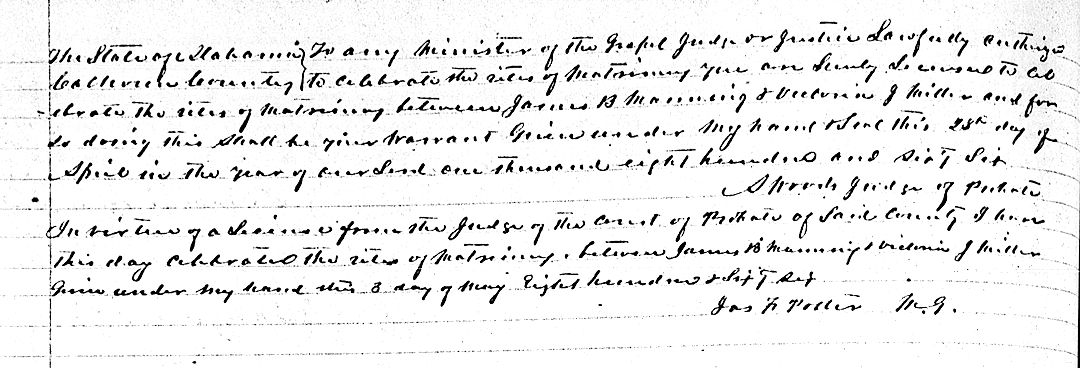 The State of Alabama } To any Minister of the Gospel Judge or Justice Lawfully authorize
Calhoun County } to celebrate the rites of Matrimony you are hereby Licensed to cel
ebrate the rites of Matrimony between James B Manning & Victoria J Miller and for
so doing this shall be your Warrant Given under my hand & Seal this 28th day of
April in the year of our Lord one thousand eight hundred and sixty six
A Woods Judge of Probate
In virtue of a License from the Judge of the Court of Probate of said County I have
this day celebrated the rites of Matrimony between James B Manning & Victoria J Miller
Given under my hand this 3 day of May Eight hundred & Sixty six
Jas F Potter M.G.